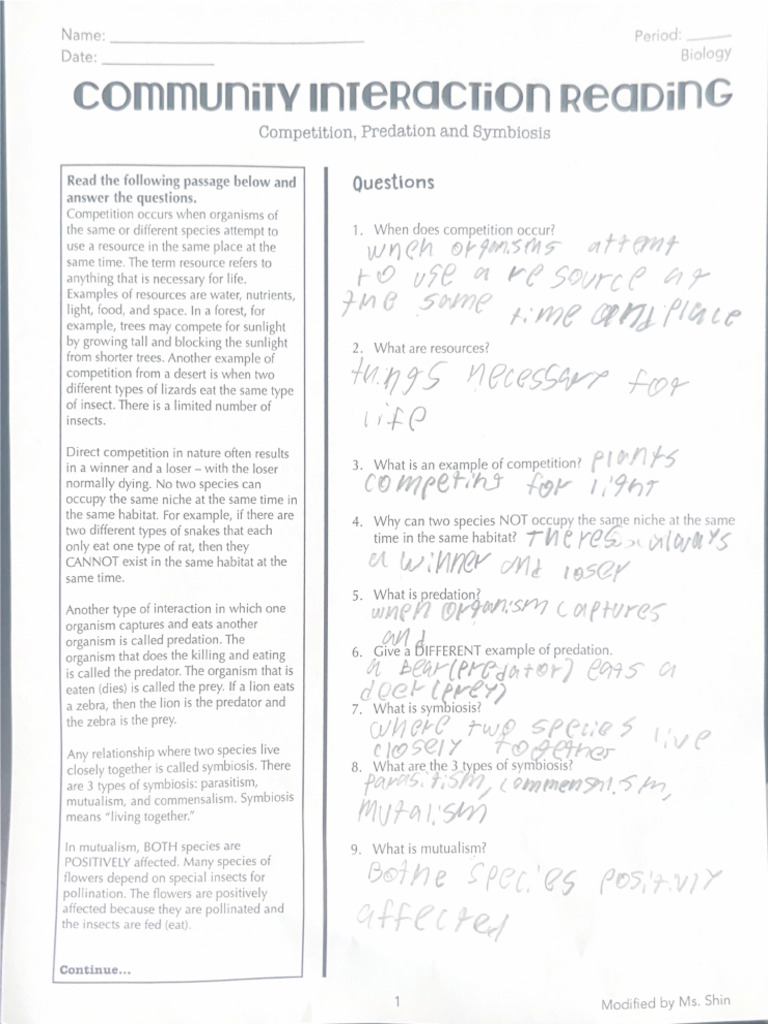 Name: ____________________ Period: _____
Date: ____________ Biology
COMMUNITY INTERACTION READING
Competition, Predation and Symbiosis
Read the following passage below and
answer the questions.
Competition occurs when organisms of
the same or different species attempt to
use a resource in the same place at the
same time. The term resource refers to
anything that is necessary for life.
Examples of resources are water, nutrients,
light, food, and space. In a forest, for
example, trees may compete for sunlight
by growing tall and blocking the sunlight
from shorter trees. Another example of
competition from a desert is when two
different types of lizards eat the same type
of insect. There is a limited number of
insects.
Direct competition in nature often results
in a winner and a loser – with the loser
normally dying. No two species can
occupy the same niche at the same time in
the same habitat. For example, if there are
two different types of snakes that each
only eat one type of rat, then they
CANNOT exist in the same habitat at the
same time.
Another type of interaction in which one
organism captures and eats another
organism is called predation. The
organism that does the killing and eating
is called the predator. The organism that is
eaten (dies) is called the prey. If a lion eats
a zebra, then the lion is the predator and
the zebra is the prey.
Any relationship where two species live
closely together is called symbiosis. There
are 3 types of symbiosis: parasitism,
mutualism, and commensalism. Symbiosis
means "living together."
In mutualism, BOTH species are
POSITIVELY affected. Many species of
flowers depend on special insects for
pollination. The flowers are positively
affected because they are pollinated and
the insects are fed (eat).
Continue...
Questions
1. When does competition occur?
when organisms attemt
to use a resource at
the same time and place
2. What are resources?
things necessary for
life
3. What is an example of competition? plants
competing for light
4. Why can two species NOT occupy the same niche at the same
time in the same habitat? theres always
a winner and loser
5. What is predation?
when organism captures
and
6. Give a DIFFERENT example of predation.
a bear(predator) eats a
deer(prey)
7. What is symbiosis?
where two species live
closely together
8. What are the 3 types of symbiosis?
parasitism, commenslism,
mutalism
9. What is mutualism?
Bothe species positivly
affected
1
Modified by Ms. Shin